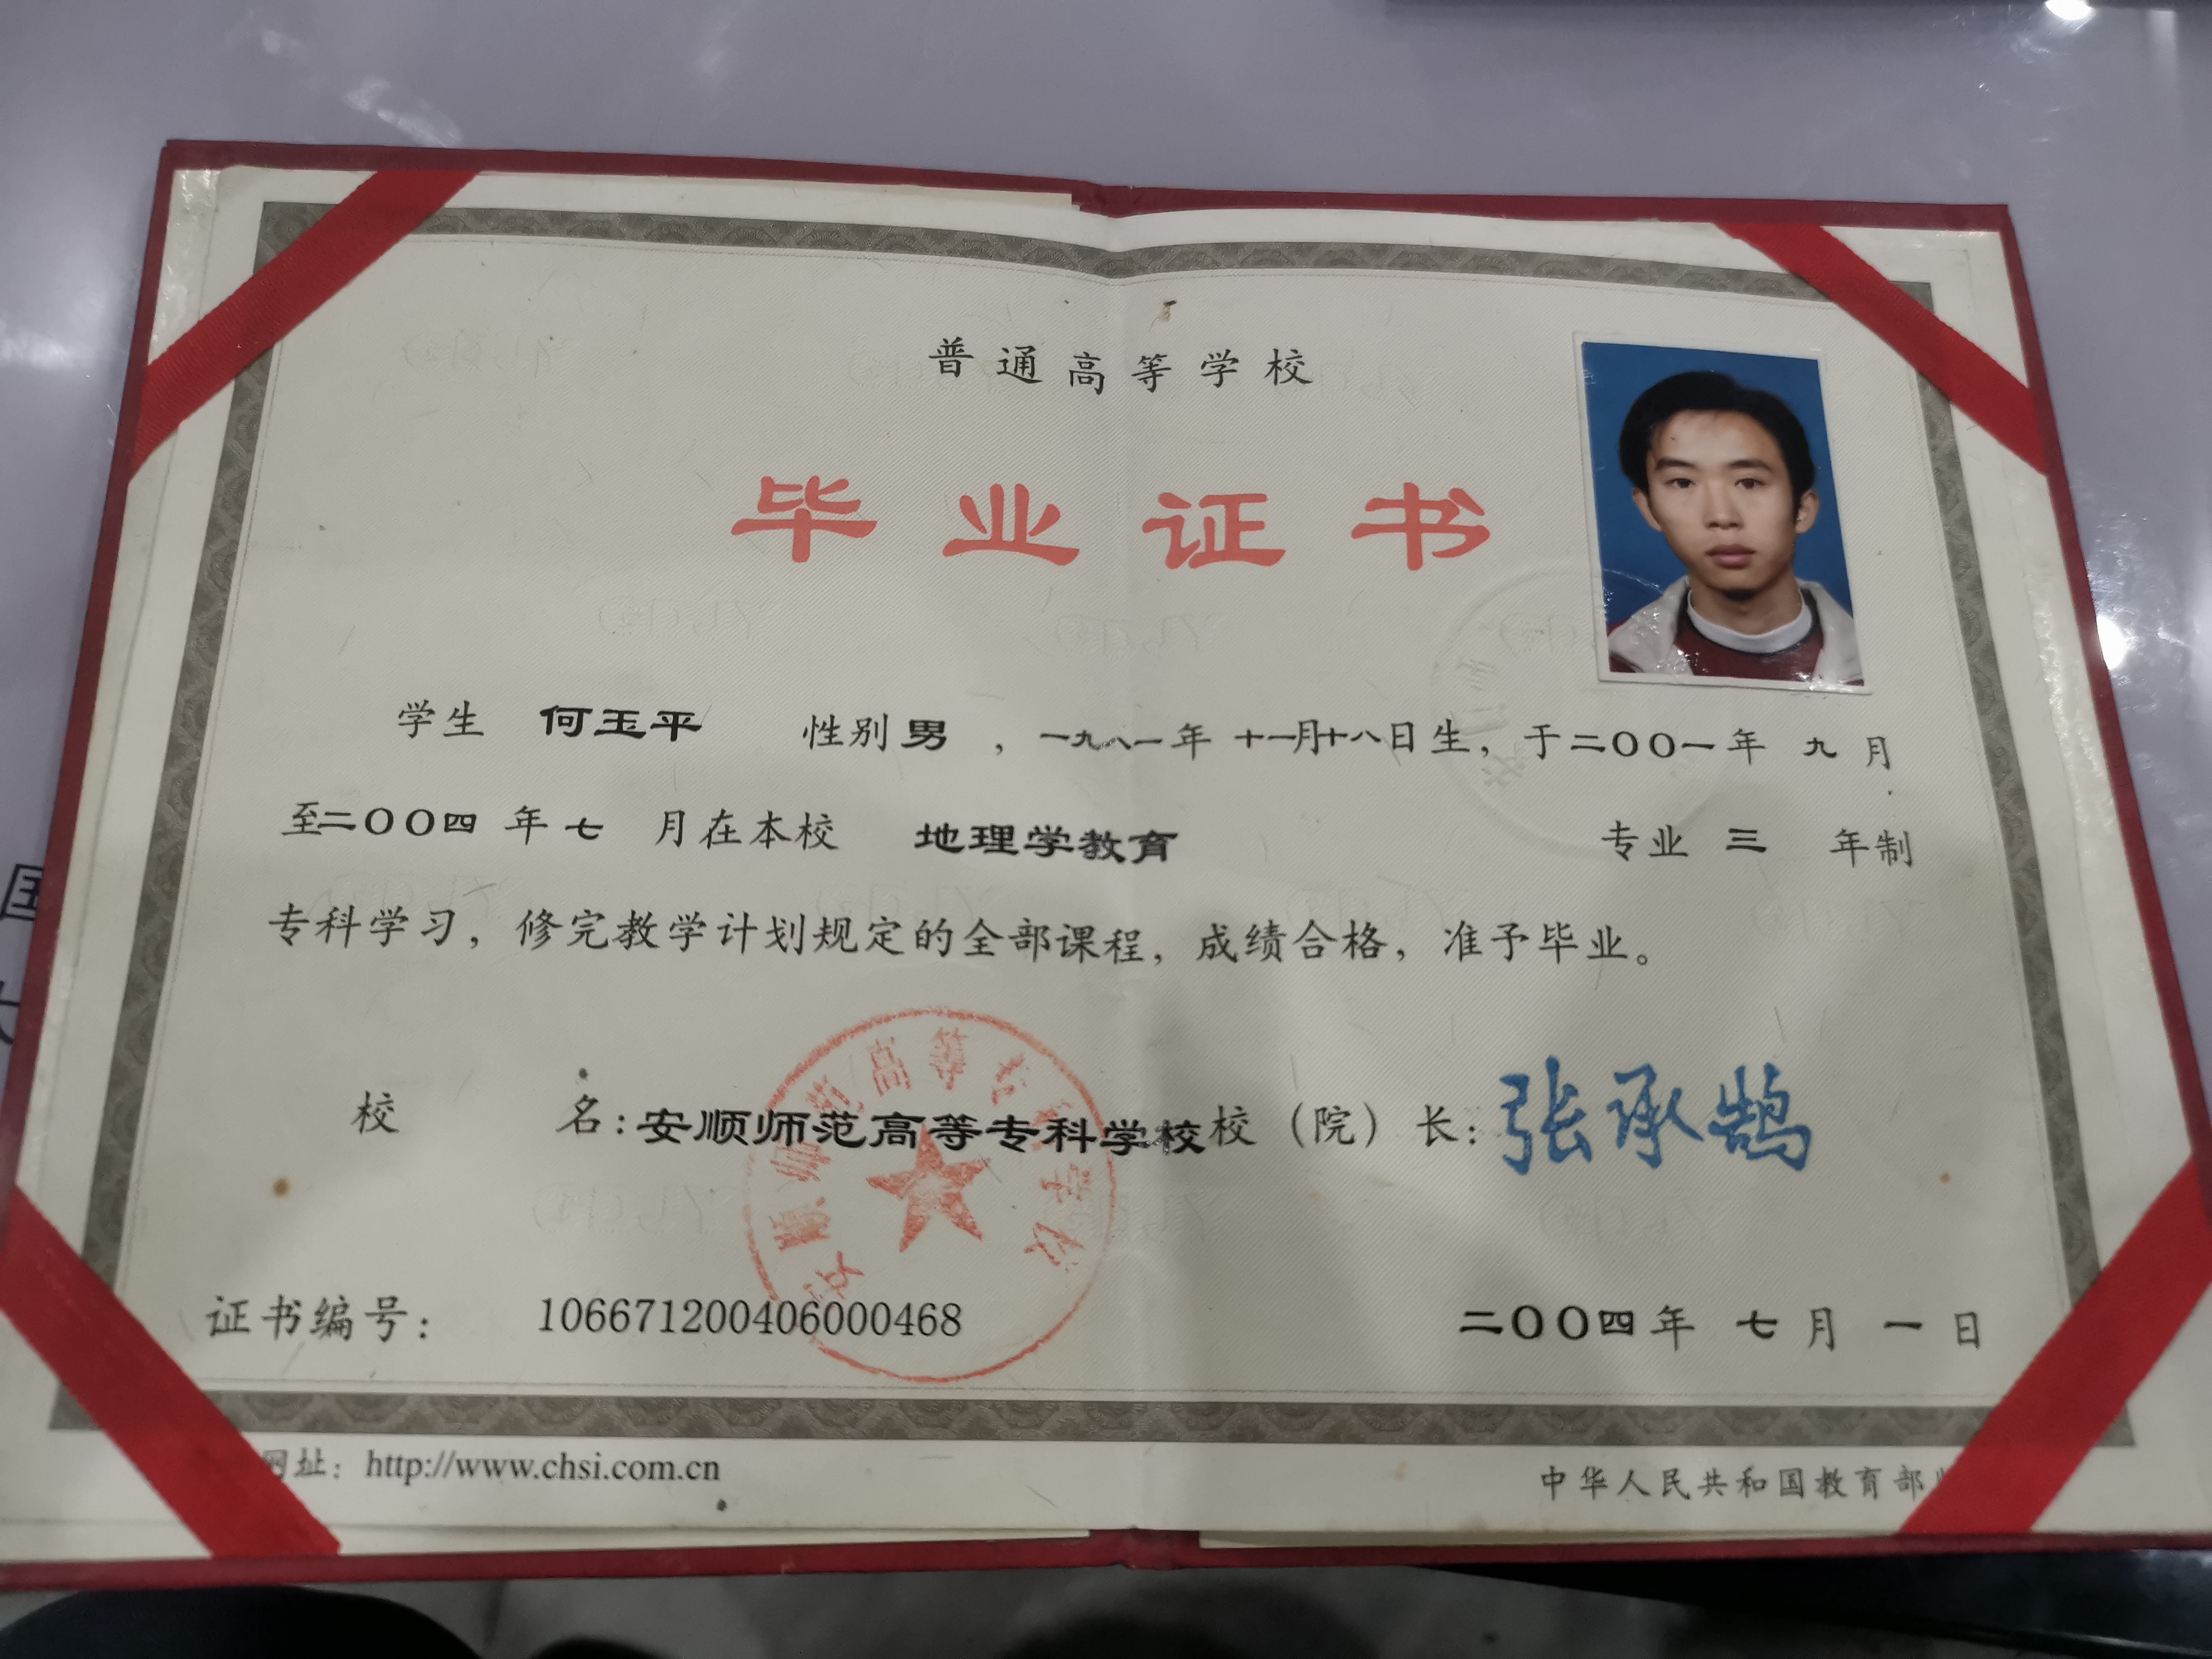 普通高等学校
毕业证书
学生 何玉平 性别 男 ，一九八一年 十一月十八日生，于二〇〇一年 九 月
至二〇〇四 年 七 月在本校 地理学教育 专业 三 年制
专科学习，修完教学计划规定的全部课程，成绩合格，准予毕业。
校 名：安顺师范高等专科学校 校（院）长：张承鹄
安顺师范高等专科学校
证书编号： 106671200406000468 二〇〇四年 七 月 一 日
网址：http://www.chsi.com.cn 中华人民共和国教育部
国